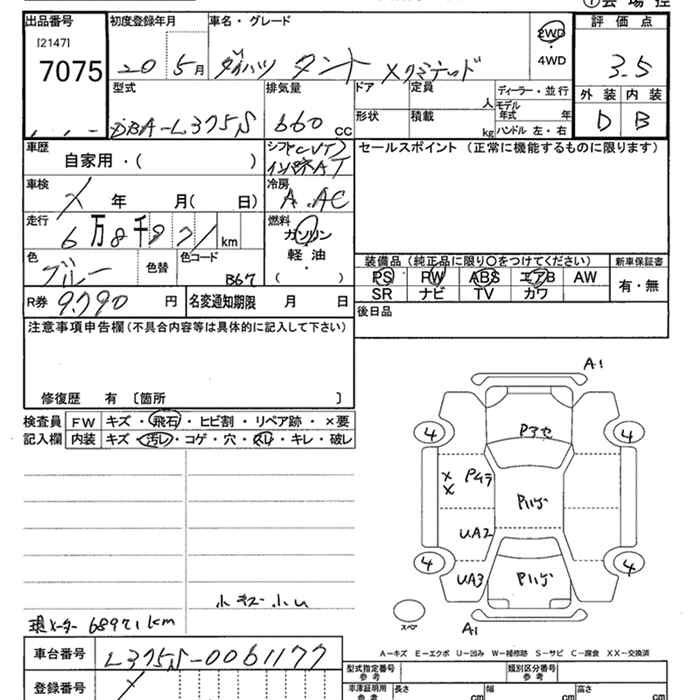 ①会場控
出品番号 初度登録年月 車名・グレード 2WD ・ 4WD 評価点
[2147]
7075 20 5月 ダイハツ タント Xリミテッド 3.5
型式 排気量 ドア 定員 人 ディーラー・並行 外装 内装
DBA-L375S 660 cc 形状 積載 kg モデル年式 年 ハンドル 左・右 D B
車歴 自家用・( ) シフト CVT インパネAT セールスポイント (正常に機能するものに限ります)
車検 年 月( 日) 冷房 A.AC
走行 6万8千9 71 km 燃料 ガソリン
色 ブルー 色替 色コード B67 軽油 ・ ( )
装備品 (純正品に限り○をつけてください) 新車保証書
PS PW ABS エアB AW 有・無
SR ナビ TV カワ
R券 9,790 円 名変通知期限 月 日
後日品
注意事項申告欄(不具合内容等は具体的に記入して下さい)
修復歴 有 〔箇所 〕
検査員 FW キズ・飛石・ヒビ割・リペア跡・×要
記入欄 内装 キズ・汚レ・コゲ・穴・スレ・キレ・破レ
A1
4 4
× Pムラ
×
UA2
UA3
4 4
スペア
A1
小キズ小凹
現メーター 68971km
A-キズ E-エクボ U-凹み W-補修跡 S-サビ C-腐食 XX-交換済
車台番号 L375S-0061177
登録番号
型式指定番号 参考 類別区分番号 参考
車庫証明用 参考 長さ cm 幅 cm 高さ cm